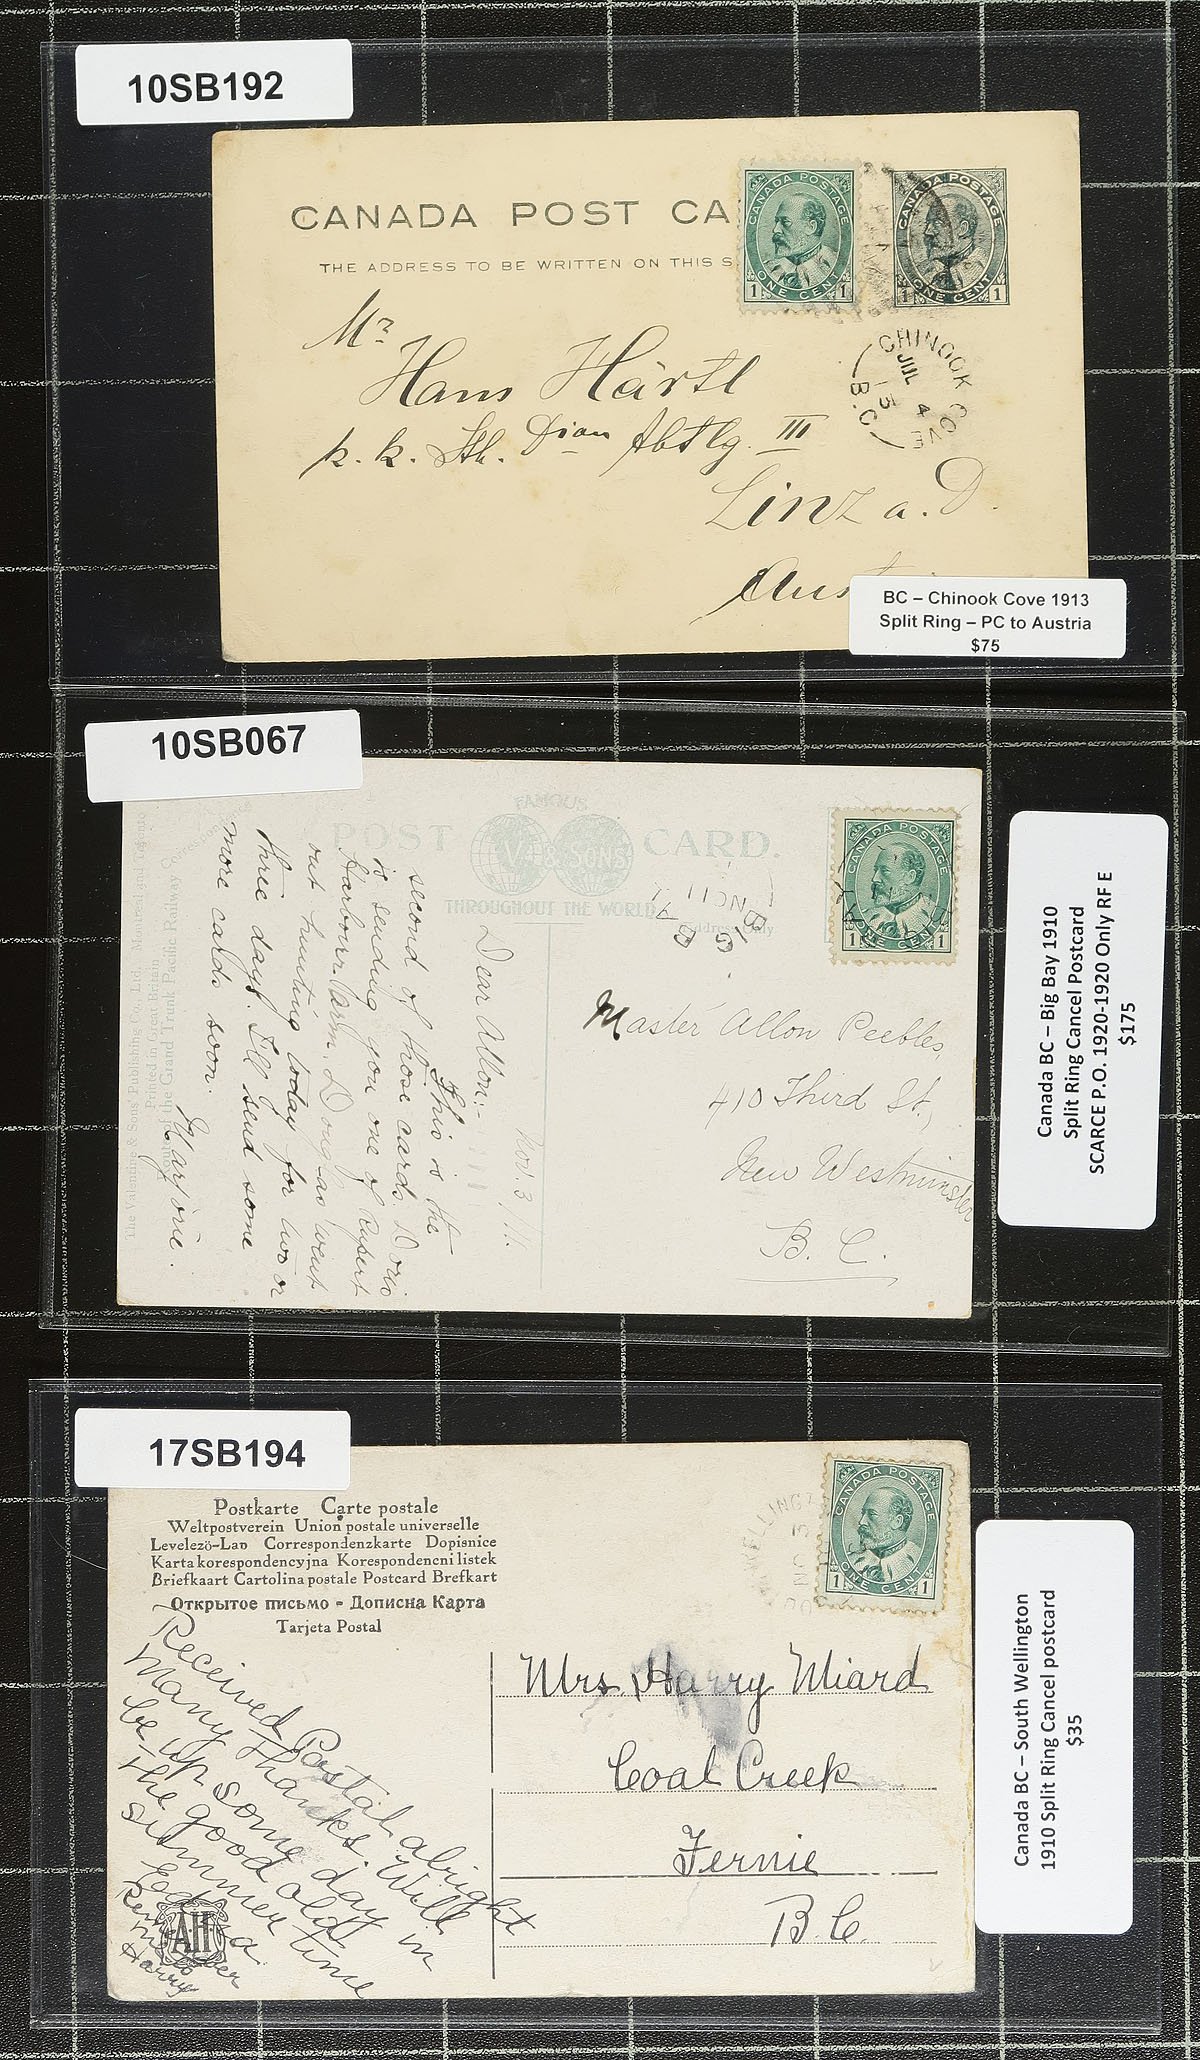 10SB192
CANADA POST CA
THE ADDRESS TO BE WRITTEN ON THIS S
CANADA POSTAGE
1 ONE CENT 1
CANADA POSTAGE
1 ONE CENT 1
CHINOOK COVE
JUL 4
13
B.C
Mr
Hans Härtl
k. k. Sth. Dion Abtlg. III
Linz a. D.
Aus
BC – Chinook Cove 1913
Split Ring – PC to Austria
$75
10SB067
FAMOUS
POST CARD.
V. & SONS
THROUGHOUT THE WORLD
Address Only
CANADA POSTAGE
1 ONE CENT 1
BIG BA
NO 11
B.C
The Valentine & Sons' Publishing Co., Ltd. Montreal and Toronto
Printed in Great Britain
Route of the Grand Trunk Pacific Railway
Nov. 3, 11.
Dear Allon:-
This is the
second of those cards. Doris
is sending you one of Rupert
Harbour arm. Douglas went
out hunting today for two or
three days. I'll send some
more cards soon.
Marjorie.
Master Allon Peebles,
410 Third St.,
New Westminster
B. C.
Canada BC – Big Bay 1910
Split Ring Cancel Postcard
SCARCE P.O. 1920-1920 Only RF E
$175
17SB194
Postkarte Carte postale
Weltpostverein Union postale universelle
Levelező-Lap Correspondenzkarte Dopisnice
Karta korespondencyjna Korespondencni listek
Briefkaart Cartolina postale Postcard Brefkart
Открытое письмо - Дописна Карта
Tarjeta Postal
WELLINGT
CANADA POSTAGE
1 ONE CENT 1
Received Postal alright
Many thanks. Will
be up some day in
the good old
summer time
Edna
Remember
me to
Harry
A.H.
Mrs. Harry Miard
Coal Creek
Fernie
B.C.
Canada BC – South Wellington
1910 Split Ring Cancel postcard
$35